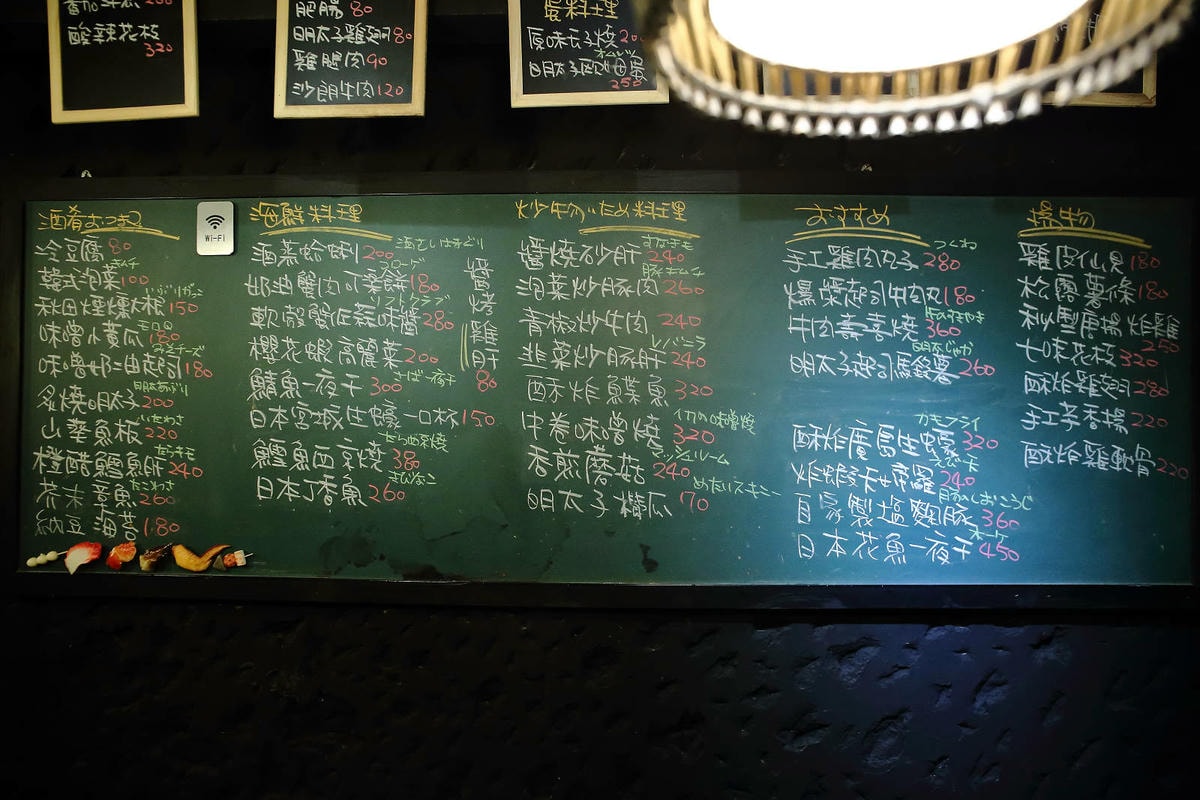 酸辣花枝
320
肥腸 80
明太子雞翅 80
雞腿肉 90
沙朗牛肉 120
蛋料理
原味玉子燒 20
オムレツ
250
酒肴おつまみ
冷豆腐 80
キムチ
韓式泡菜 100
いぶりがっこ
秋田煙燻大根 150
モロQ
味噌小黃瓜 180
みそチーズ
味噌奶油起司 180
明太あぶり
炙燒明太子 200
いたわさ
山葵魚板 220
たらキモ
橙醋鱈魚肝 240
たこわさ
芥末章魚 260
納豆海苔 180
Wi-Fi
海鮮料理
酒蒸蛤蜊 200
奶油蟹肉可樂餅 180
ソフトクラブ
軟殼蟹佐蒜味醬 280
櫻花蝦高麗菜 200
さば一夜干
鯖魚一夜干 300
日本宮城生蠔一口杯 150
鱈魚西京燒 380
日本丁香魚 260
醬烤雞肝
80
炒牛物いため料理
すなぎも
醬燒砂肝 240
豚キムチ
泡菜炒豚肉 260
青椒炒牛肉 240
レバニラ
韭菜炒豚肝 240
酥炸鰈魚 320
イカの味噌燒
中卷味噌燒 320
マッシュルーム
香煎蘑菇 240
めたいズッキーニ
明太子櫛瓜 170
おすすめ
つくね
手工雞肉丸子 280
爆漿起司牛肉丸 180
牛肉壽喜燒 360
明太じゃが
明太子起司馬鈴薯 260
カキフライ
酥炸廣島生蠔 320
炸蝦卡娣羅 240
自家製塩麴豚 360
ホッケ
日本花魚一夜干 450
揚物
雞皮仙貝 180
松露薯條 180
秋型唐揚炸雞
250
七味花枝 320
酥炸雞翅 280
手工辛香揚 220
酥炸雞軟骨 220